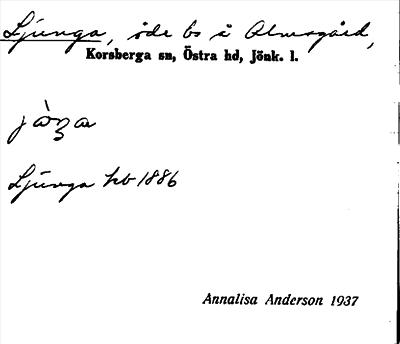 Ljunga, öde ls å Almsgård,
Korsberga sn, Östra hd, Jönk. l.
Ljunga hb 1886
Annalisa Anderson 1937